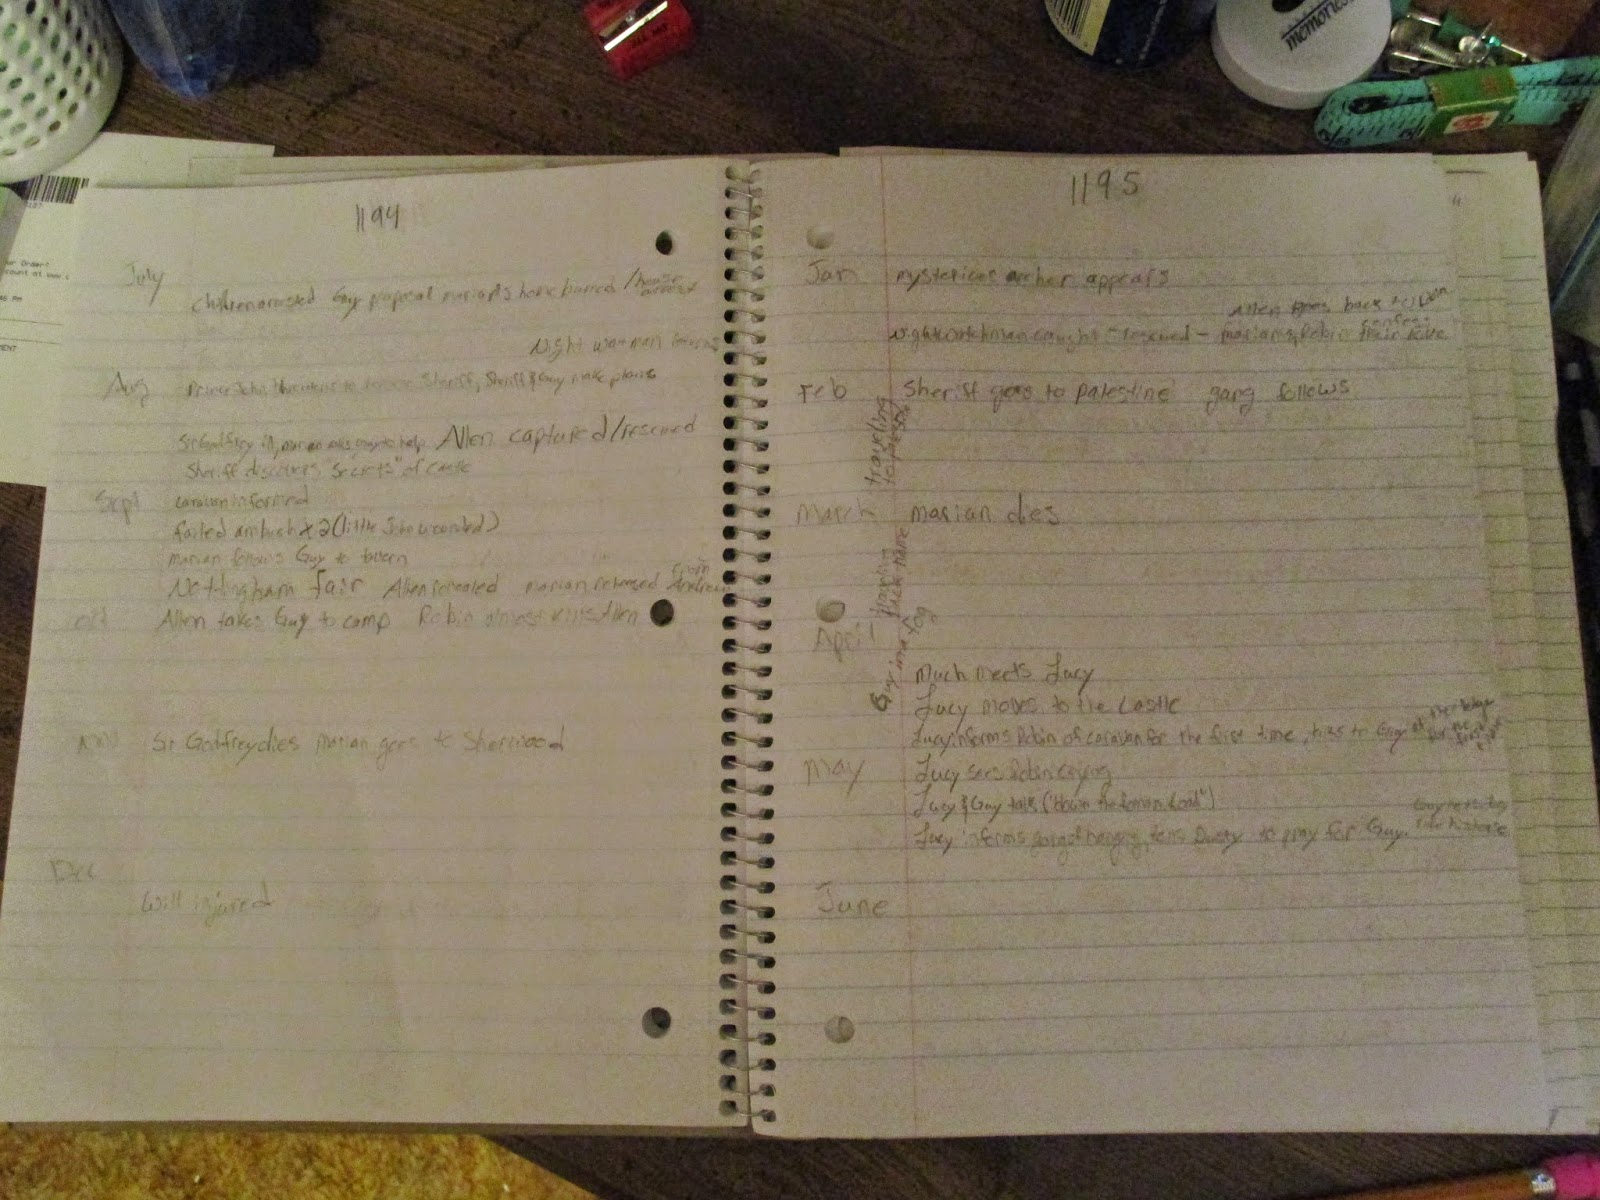 memories
1194
July
Children arrested Guy proposal marian's home burned / house arrest
Night watman
Aug Prince John threatens to Sheriff, Sheriff & Guy make plans
Sir Godfrey ill, marian asks Guy to help. Allen captured/rescued
Sheriff discovers "secrets" of castle
Sept caravan informed
failed ambush x 2 (little John wounded)
marian follows Guy to tavern
Nottingham fair Allen revealed marian released from
oct Allen takes Guy to camp Robin almost kills Allen
nov Sir Godfrey dies marian goes to Sherwood
Dec
Will injured
1195
Jan mysterious archer appears
Allen goes back w/
nightwatchman caught & rescued - marian & Robin confess their love
Feb Sheriff goes to Palestine gang follows
traveling to
March marian dies
traveling back home
April
Guy in a fog
Much meets Lucy
Lucy moves to the castle
Lucy informs Robin of caravan for the first time, talks to Guy at the for the first time
May Lucy sees Robin crying
Lucy & Guy talk ("down the Road")
Lucy informs gang of hanging, tells to pray for Guy.
June